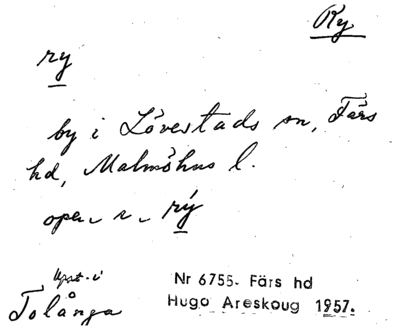 Ry
ry
by i Lövestads sn, Färs
hd, Malmöhus l.
ry
Uppt. i
Tolånga
Nr 6755. Färs hd
Hugo Areskoug 1957.